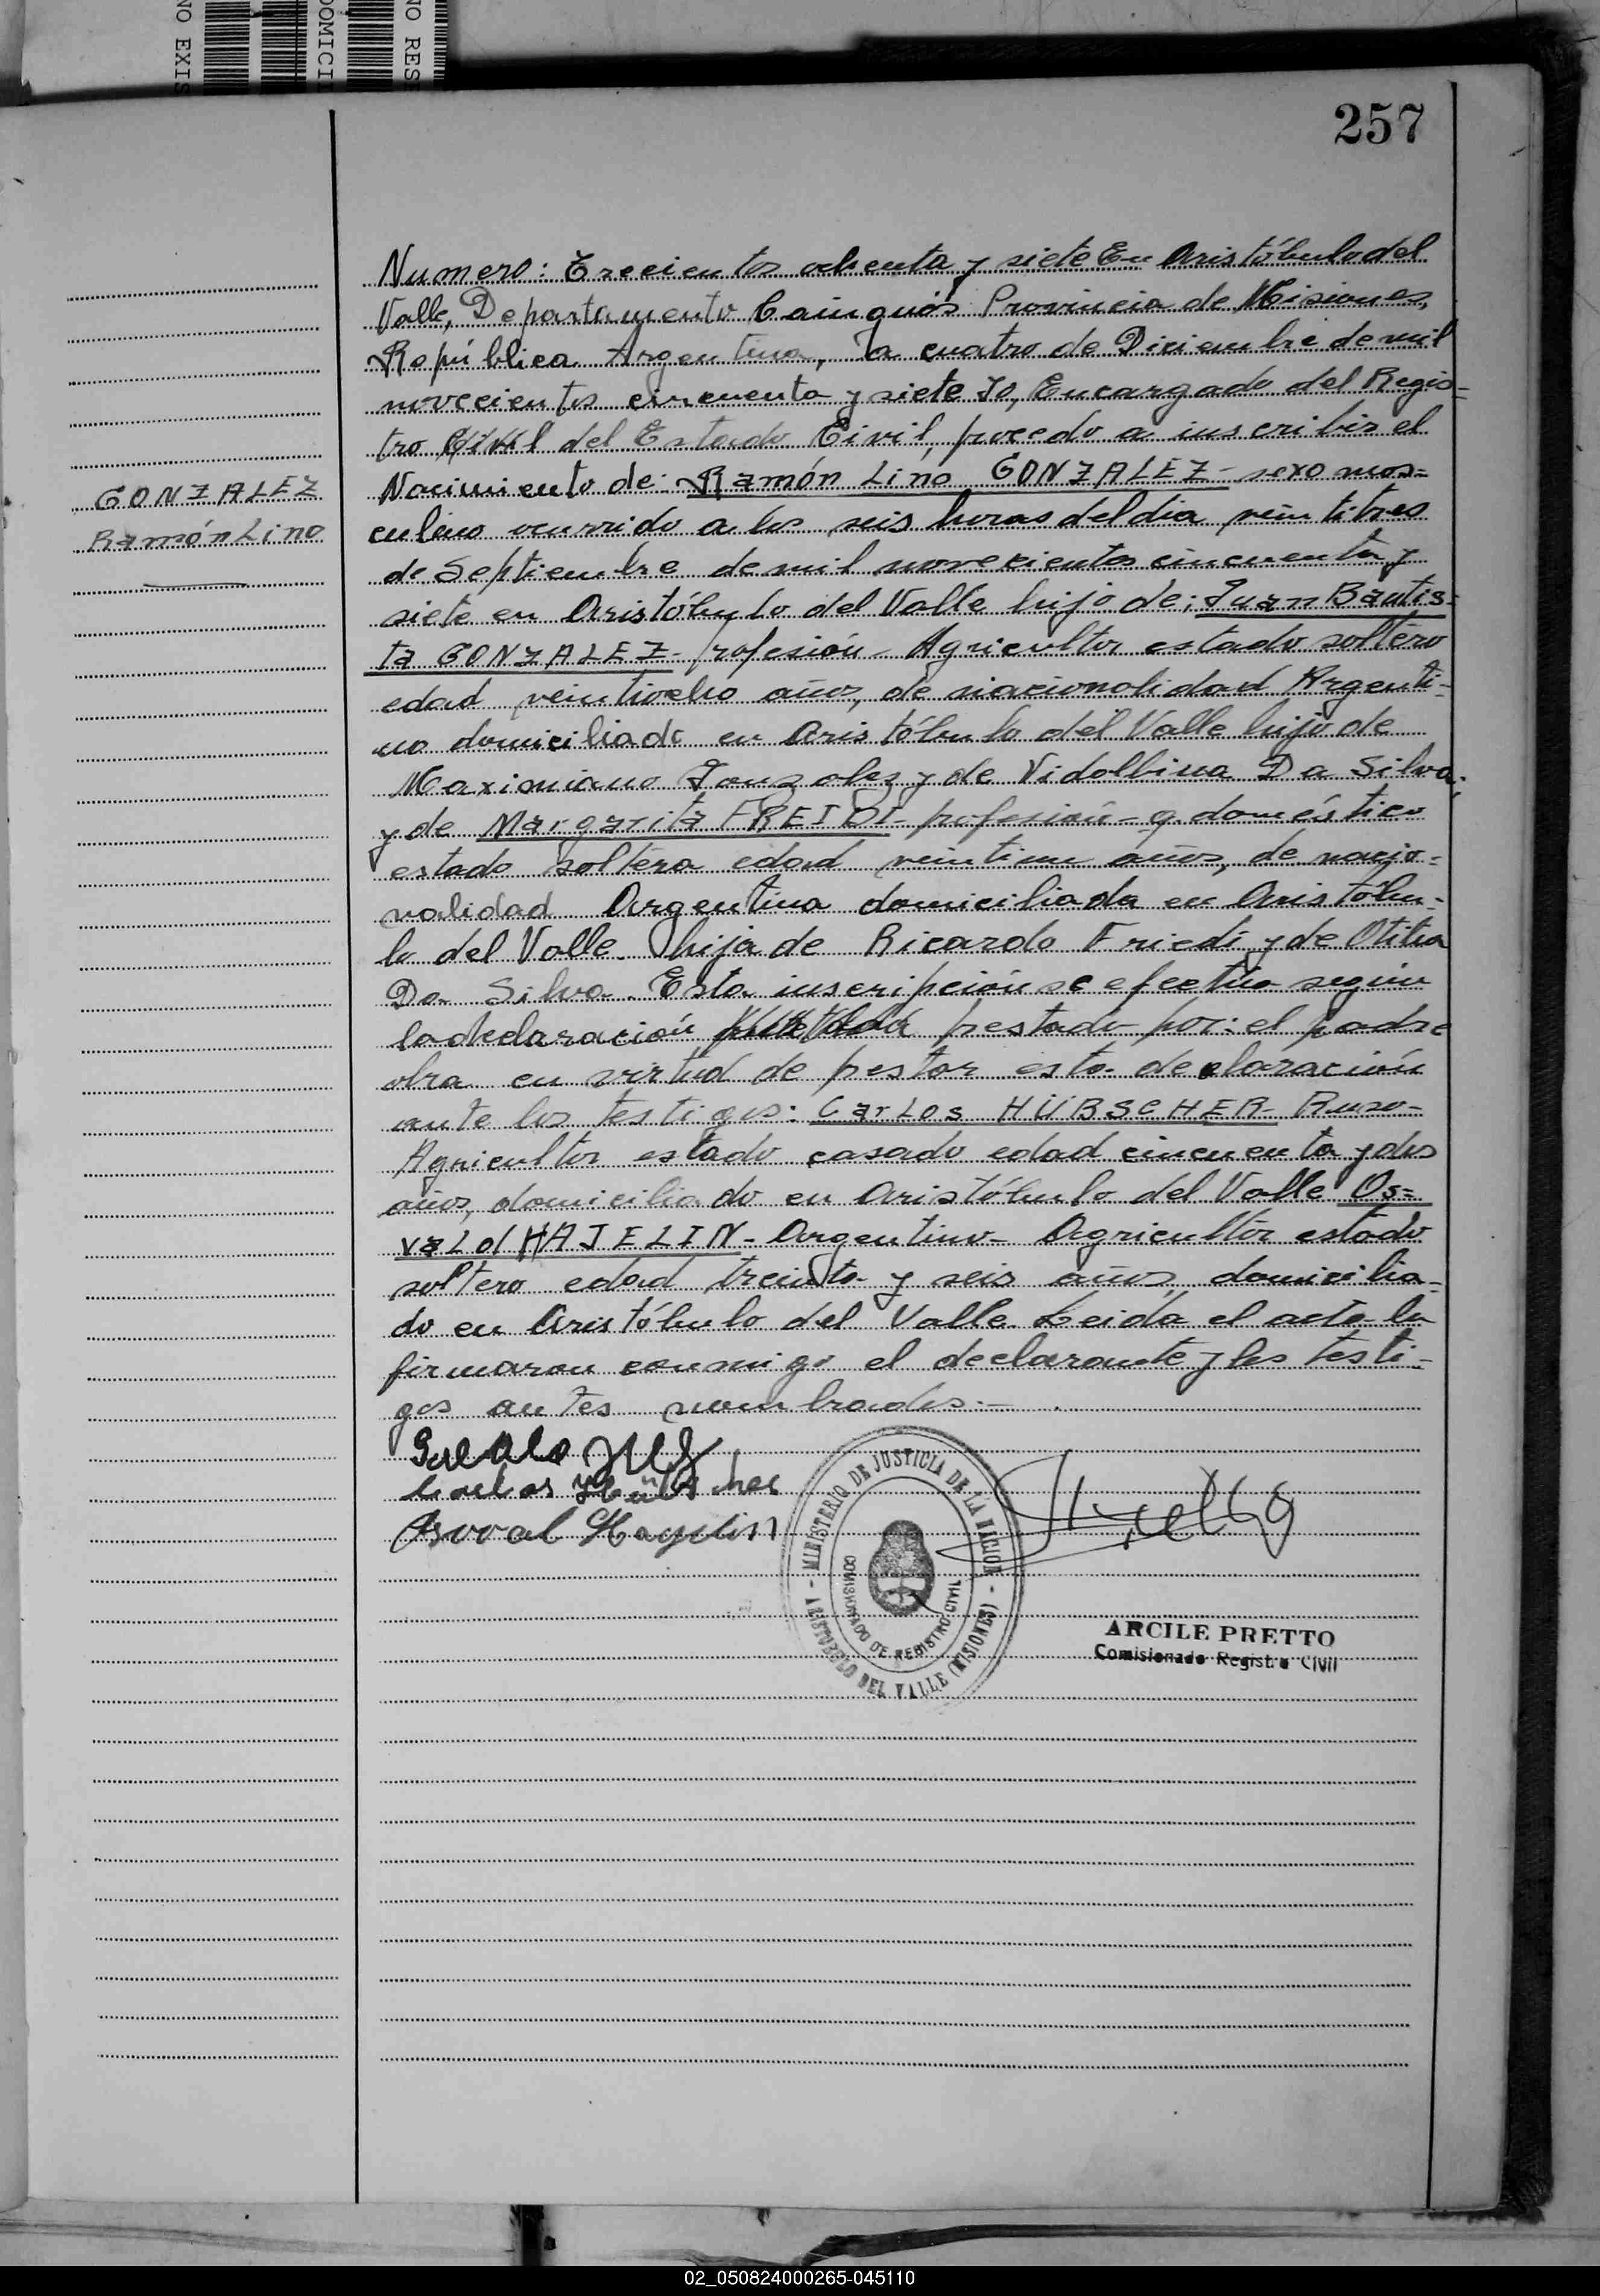 NO EXIS
DOMICI
NO RES
257
Numero: Trecientos ochenta y siete En Aristóbulo del
Valle, Departamento Cainguás Provincia de Misiones,
República Argentina, a cuatro de Diciembre de mil
novecientos cincuenta y siete Yo, Encargado del Regis=
tro Civil del Estado Civil, procedo a inscribir el
Nacimiento de: Ramón Lino GONZALEZ - sexo mas=
culino ocurrido a las seis horas del dia veintitres
de Septiembre de mil novecientos cincuenta y
siete en Aristóbulo del Valle hijo de: Juan Bautis=
ta GONZALEZ - profesión - Agricultor estado soltero
edad veintiocho años, de nacionalidad Argenti-
no domiciliado en Aristóbulo del Valle hijo de
Maximiano Gonzalez y de Vidolbina Da Silva;
y de Margarita FREIDI - profesión - q. doméstico
estado soltera edad veintiun años, de nacio=
nalidad Argentina domiciliada en Aristóbu-
lo del Valle. hija de Ricardo Friedi y de Otilia
Da Silva. Esta inscripción se efectúa según
la declaración prestado por: el padre
obra en virtud de pestar esta declaración
ante los testigos: Carlos HÜBSCHER - Ruso -
Agricultor estado casado edad cincuenta y dos
años, domiciliado en Aristóbulo del Valle Os=
valdHAJELIN - Argentino - Agricultor estado
soltero edad treinta y seis años, domicilia-
do en Aristóbulo del Valle. Leida el acta la
firmaron conmigo el declarante y los testi-
gos antes nombrados:-
GONZALEZ
Ramón Lino
Carlos Hübscher
Osval Hayelin
MINISTERIO DE JUSTICIA DE LA NACION
COMISIONADO DE REGISTRO CIVIL
ARISTOBULO DEL VALLE (MISIONES)
ARCILE PRETTO
Comisionado Registro Civil
02_050824000265-045110